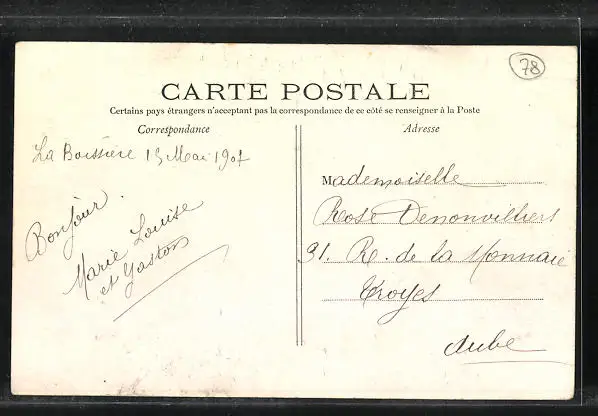 78
CARTE POSTALE
Certains pays étrangers n'acceptant pas la correspondance de ce côté se renseigner à la Poste
Correspondance
La Boissière 15 Mai 1907
Bonjour.
Marie Louise
et Gaston
Adresse
Mademoiselle
Rose Denonvilliers
31. R. de la Monnaie
Troyes
Aube